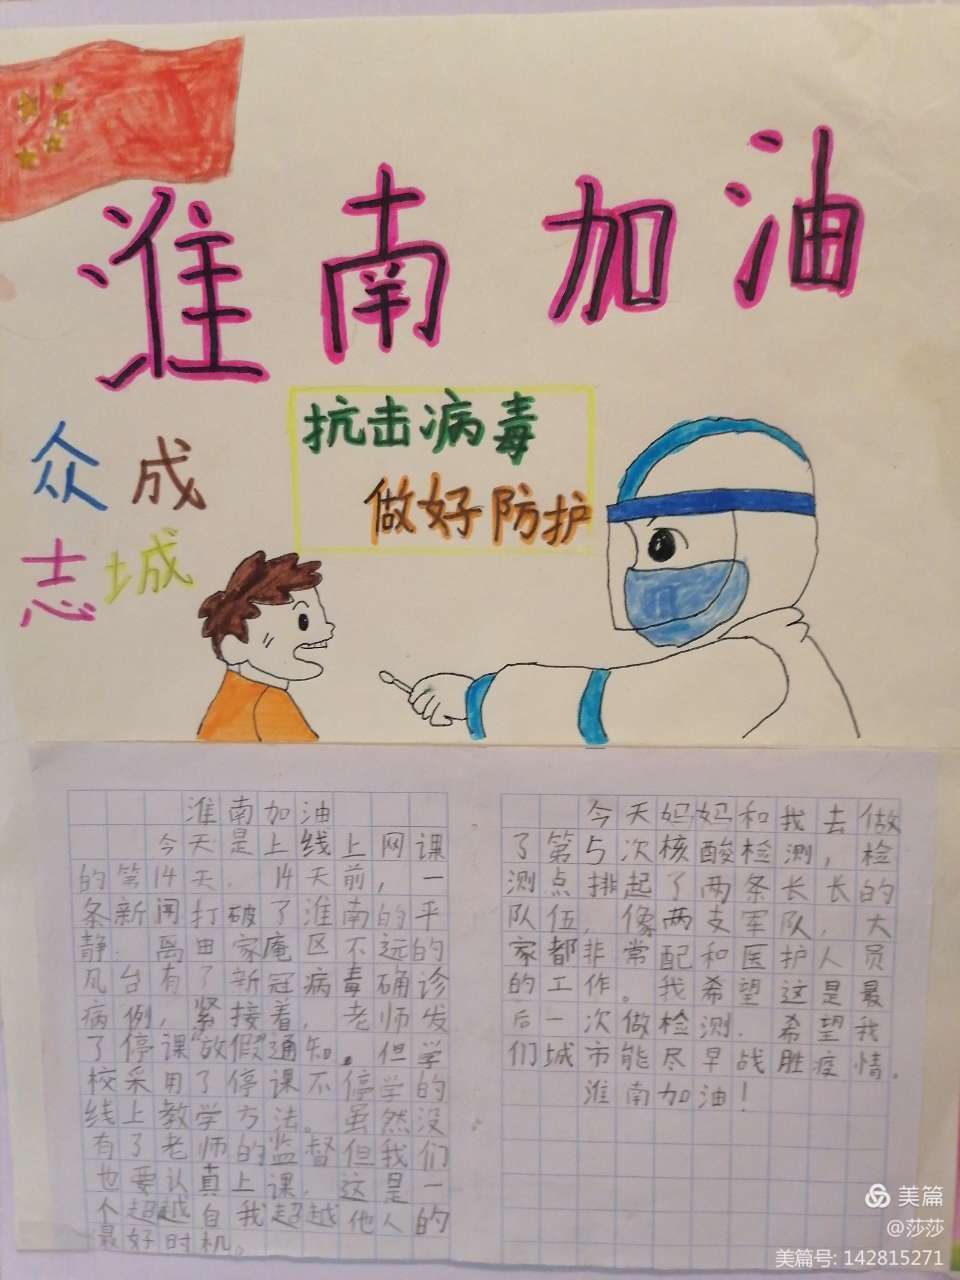 淮南加油
抗击病毒
做好防护
众成
志城
淮南加油
今天是上线上网课
的第14天.14天前,一
条新闻打破了淮南的平
静.离田家庵区不远的
凤台有了新冠病毒确诊
病例,紧接着,老师发
了停课"放假"通知。但学
校采用了停课不停学的
线上教学方法。虽然没
有了老师的监督但我们
也要认真上课.这是一
个超越自我超越他人的
最好时机。
今天妈妈和我去做
了第5次核酸检测,检
测点排起了两条长长的
队伍,像两支军队,大
家都非常配和医护人员
的工作。我希望这是最
后一次做检测.希望我
们城市能尽早战胜疫情.
淮南加油!
美篇
@莎莎
美篇号:142815271